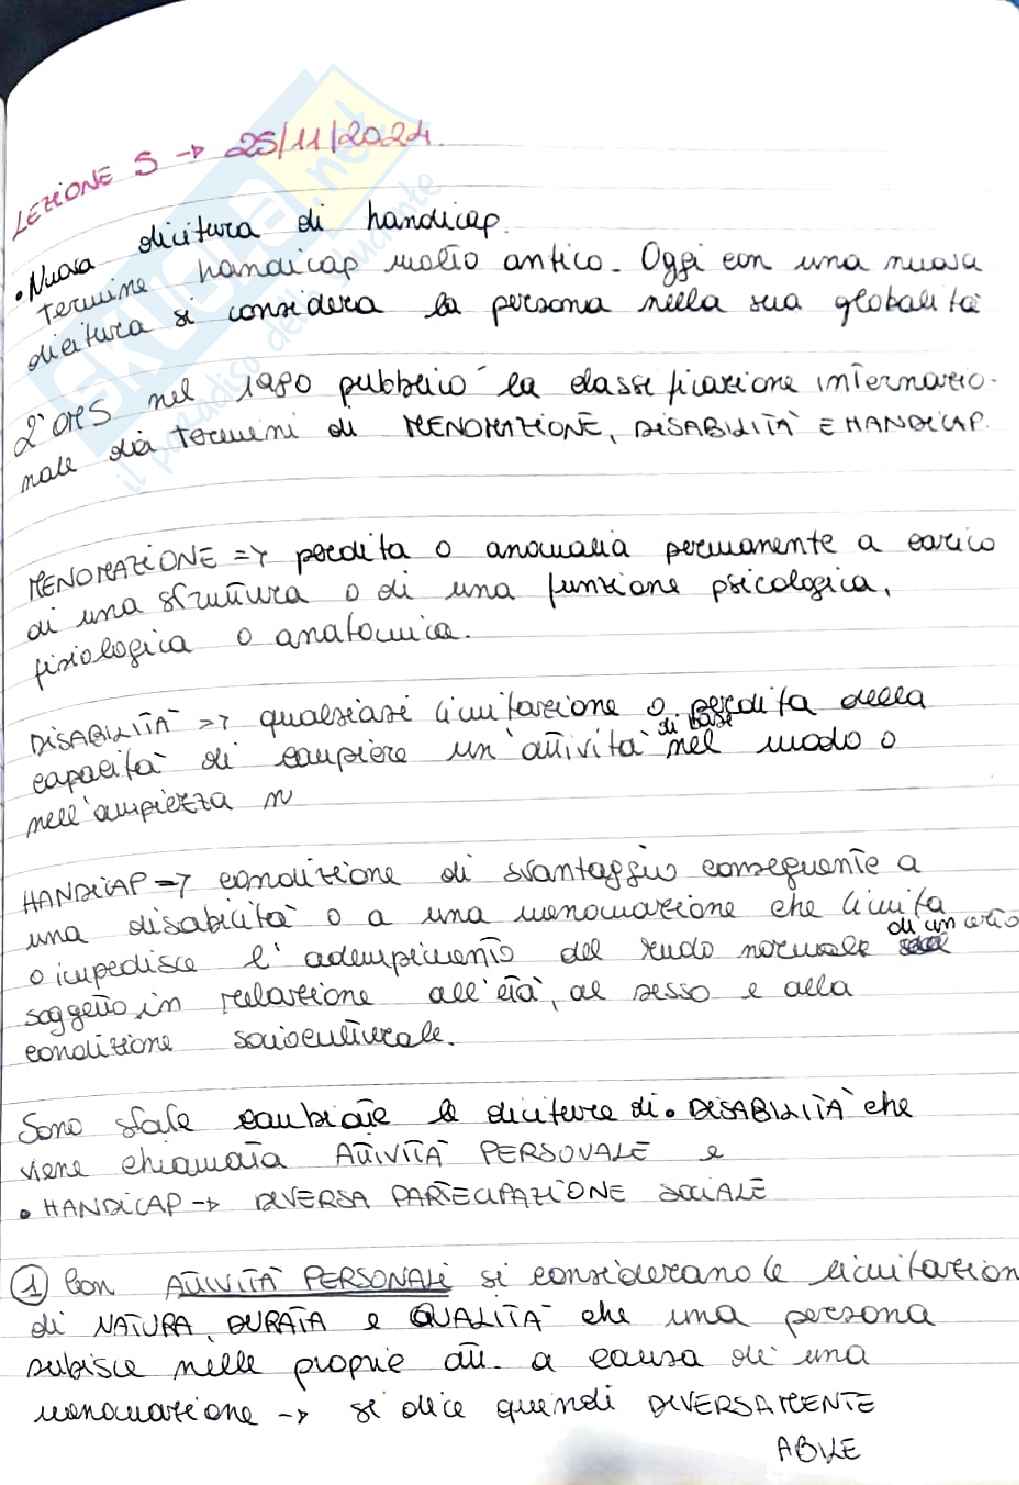 LEZIONE 5 → 25/11/2024.
• Nuova dicitura di handicap.
termine handicap molto antico. Oggi con una nuova
dicitura si considera la persona nella sua globalità
L'OMS nel 1980 pubblicò la classificazione internazio-
nale dei termini di MENOMAZIONE, DISABILITÀ E HANDICAP.
MENOMAZIONE => perdita o anomalia permanente a carico
di una struttura o di una funzione psicologica,
fisiologica o anatomica.
DISABILITÀ => qualsiasi limitazione o perdita della
capacità di compiere un'attività di base nel modo o
nell'ampiezza n
HANDICAP => condizione di svantaggio conseguente a
una disabilità o a una menomazione che limita
o impedisce l'adempimento del ruolo normale di un certo
soggetto in relazione all'età, al sesso e alla
condizione socioculturale.
Sono state cambiate le diciture di • DISABILITÀ che
viene chiamata ATTIVITÀ PERSONALE e
• HANDICAP → DIVERSA PARTECIPAZIONE SOCIALE
1 Con ATTIVITÀ PERSONALE si considerano le limitazion
di NATURA, DURATA e QUALITÀ che una persona
subisce nelle proprie att. a causa di una
menomazione → si dice quindi DIVERSAMENTE
ABILE
SKUOLA.net
il paradiso dello studente